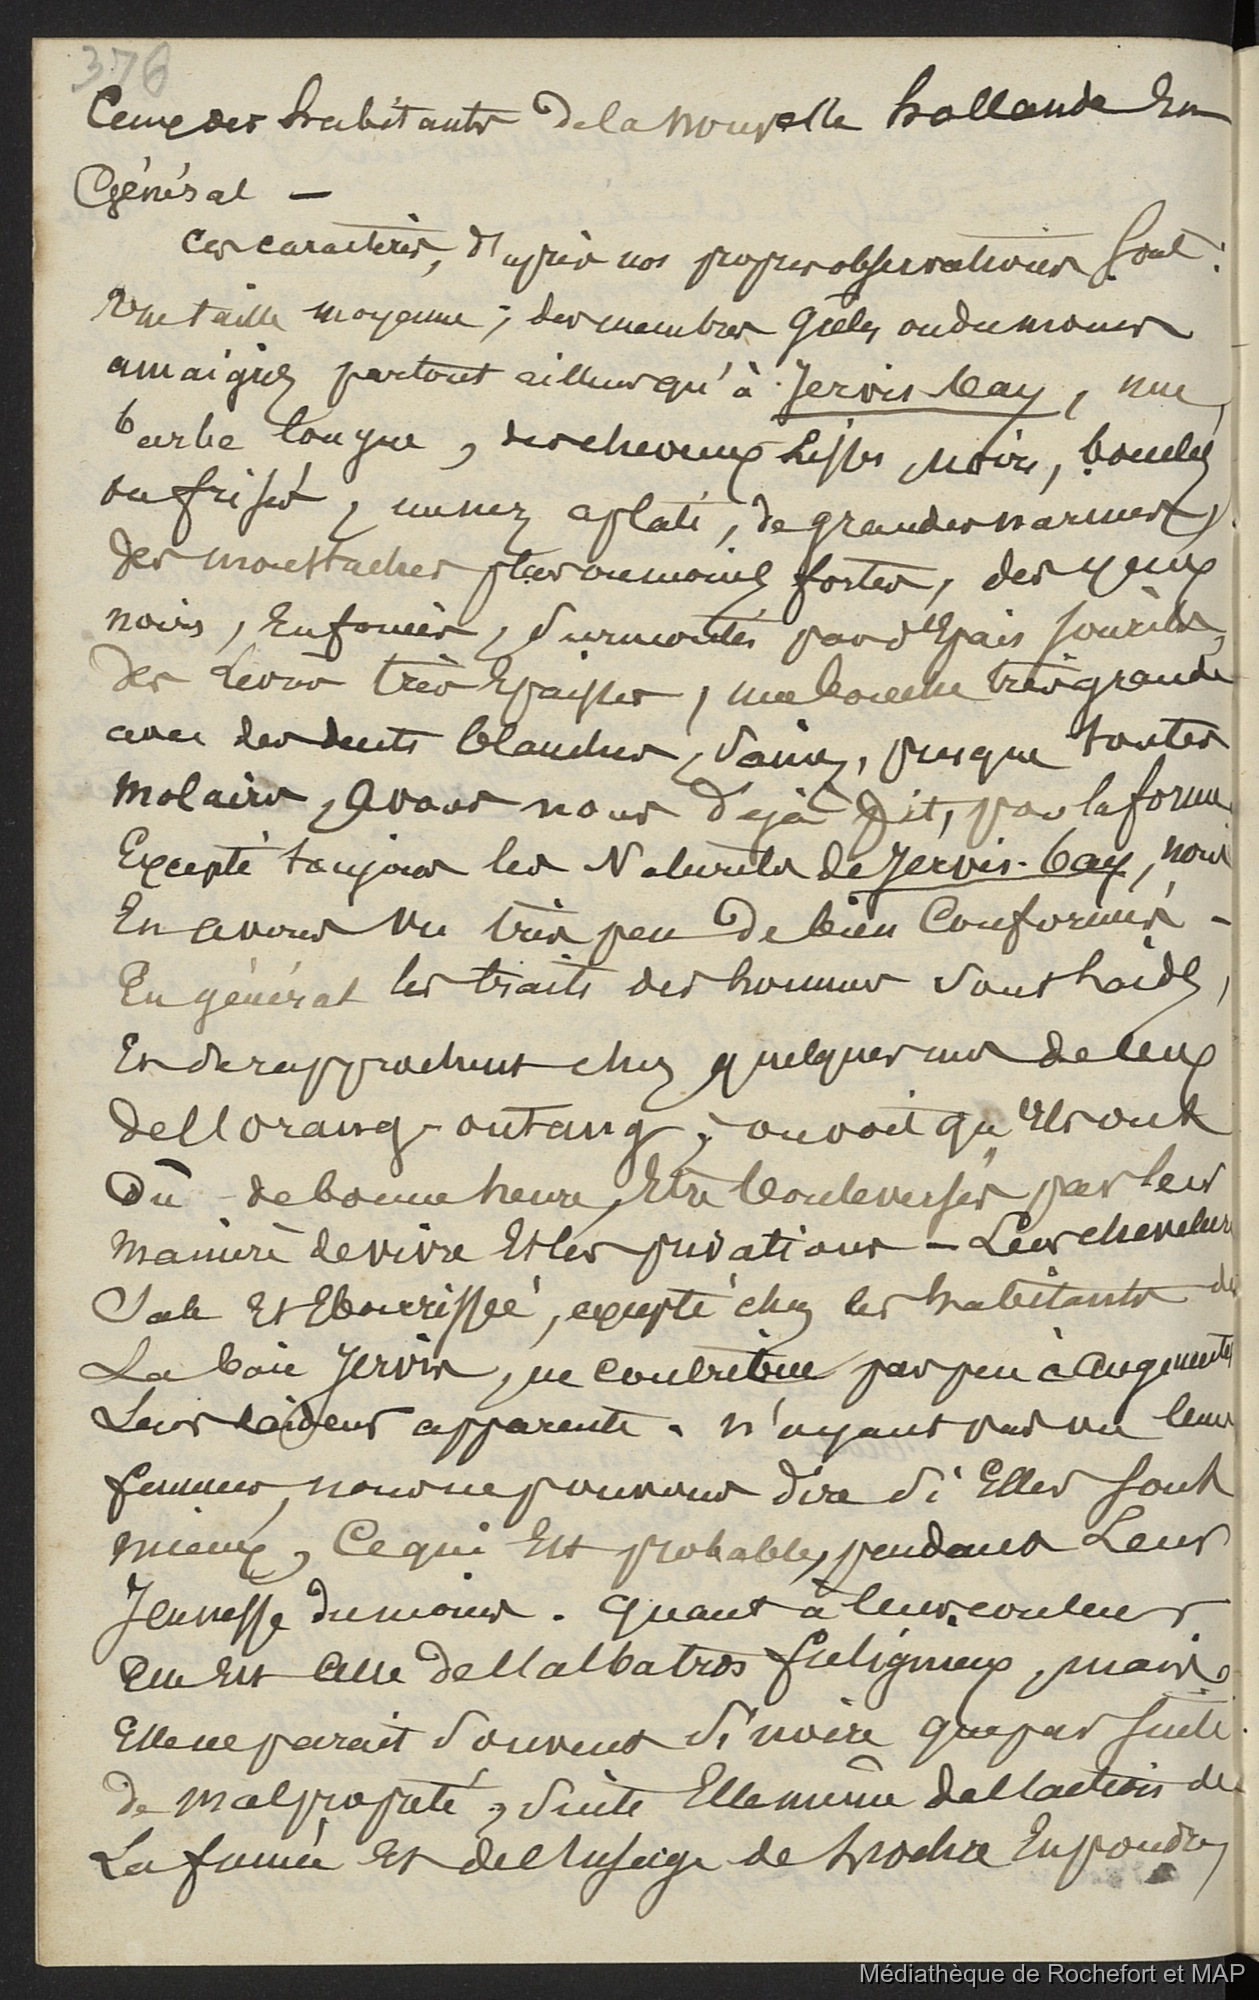 376
Ceux des habitants de la nouvelle hollande En
Général —
Ces caractères, d'après nos propres observations sont :
Une taille moyenne ; des membres Grêles ou du moins
amaigris partout ailleurs qu'à Jervis-bay, une
barbe longue, des cheveux Lisses, noirs, bouclés
ou frisés, un nez aplati, de grandes narines,
des moustaches plus ou moins fortes, des yeux
noirs, Enfoncés, surmontés par d'Epais sourcils,
des Levres très Epaisses, une bouche très grande
avec des dents blanches, saines, presque toutes
molaires, avons nous déjà dit, par la forme
Excepté toujours les Naturels de Jervis-bay, nous
En avons vu très peu de bien Conformés –
En général les traits des hommes sont Laids,
Et se rapprochent chez quelques uns de ceux
de l'orang-outang ; on voit qu'Ils ont
Dû de bonne heure, Etre bouleversés par leur
manière de vivre Et les privations – Leur chevelure
Sale Et Ebourrissée, excepté chez les habitants de
La baie Jervis, ne contribue pas peu à augmenter
Leur laideur apparente. N'ayant pas vu leurs
femmes, nous ne pouvons dire si Elles sont
mieux, Ce qui Est probable, pendant Leur
Jeunesse du moins. Quant à leur couleur
Elle Est Celle de l'albatros fuligineux, mais
Elle ne parait souvent si noire que par suite
de malpropreté, suite Elle même de l'action de
La fumée Et de l'usage de l'hochre En poudre,
Médiathèque de Rochefort et MAP